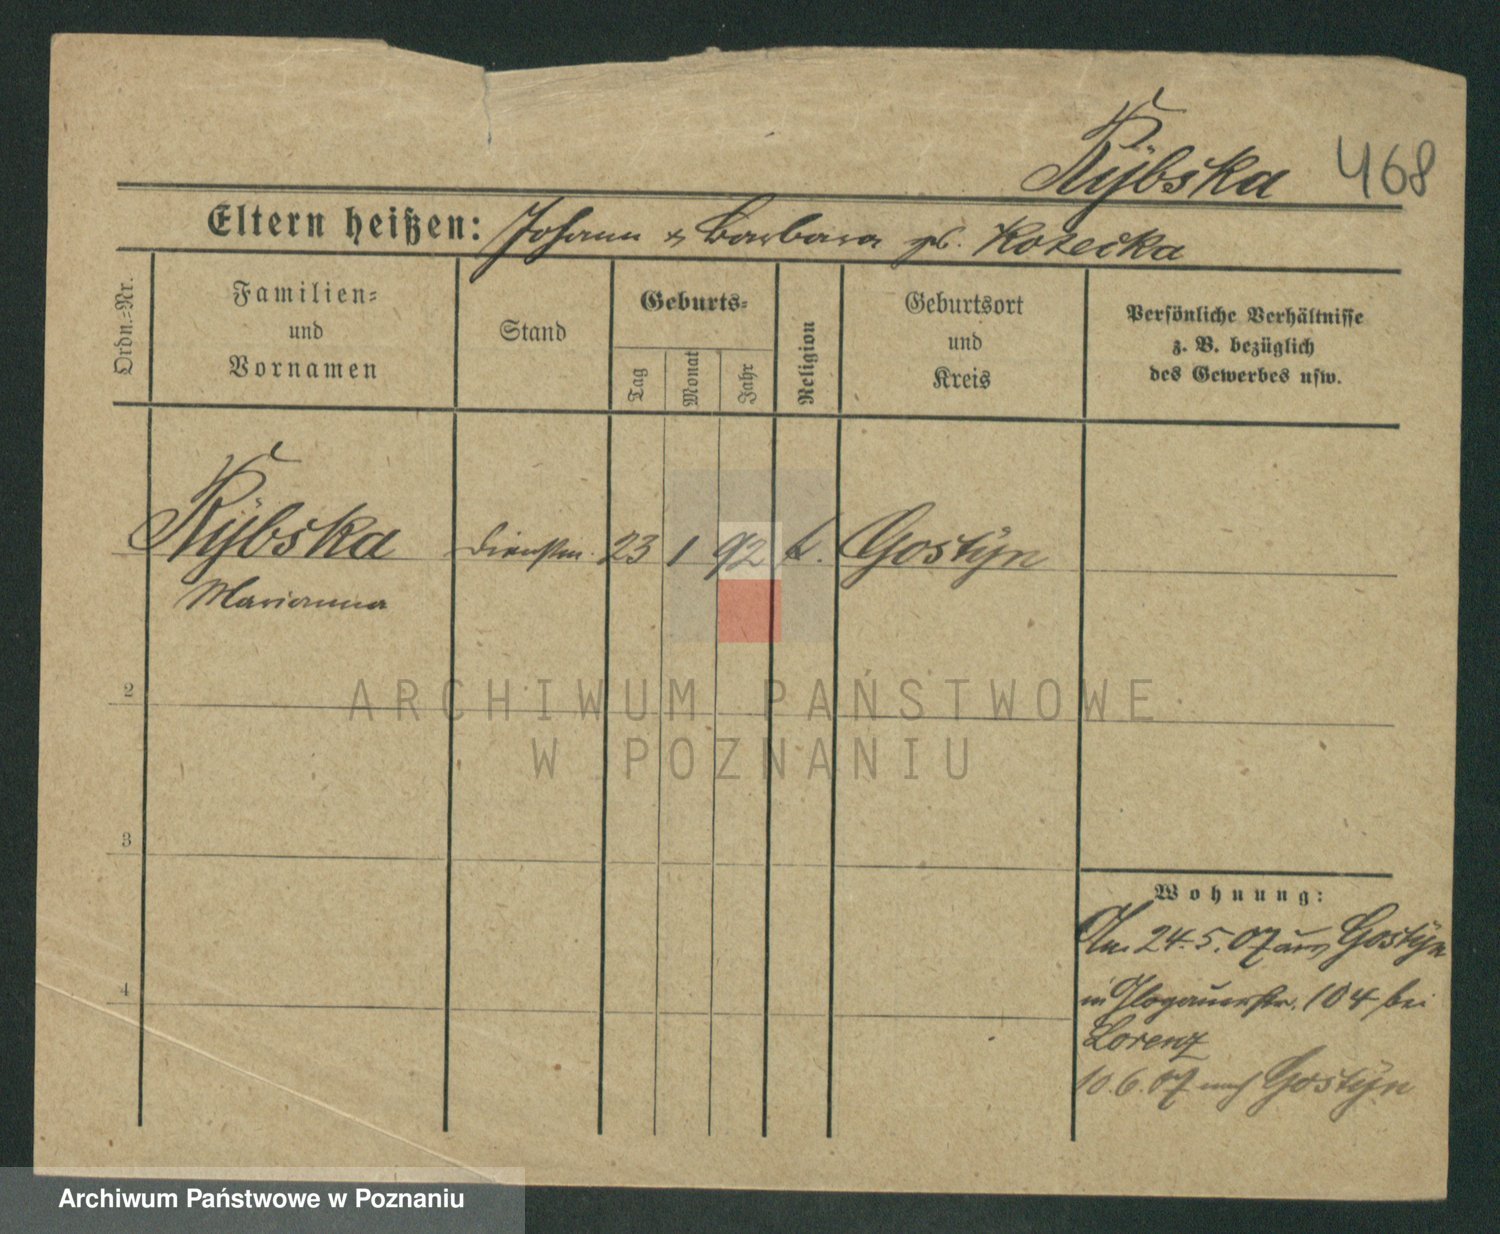 Rÿbska 468
Eltern heißen: Johann & Barbara gb. Kotecka
Ordn.=Nr.
Familien=
und
Vornamen
Stand
Geburts=
Tag
Monat
Jahr
Religion
Geburtsort
und
Kreis
Persönliche Verhältnisse
z. B. bezüglich
des Gewerbes usw.
Rÿbska Dienstm. 23 1 92 k. Gostÿn
Marianna
2
3
4
ARCHIWUM PAŃSTWOWE
W POZNANIU
Wohnung:
24.5.07 aus Gostÿn
in Glogauerstr. 104 bei
Lorenz
10.6.07 nach Gostÿn
Archiwum Państwowe w Poznaniu